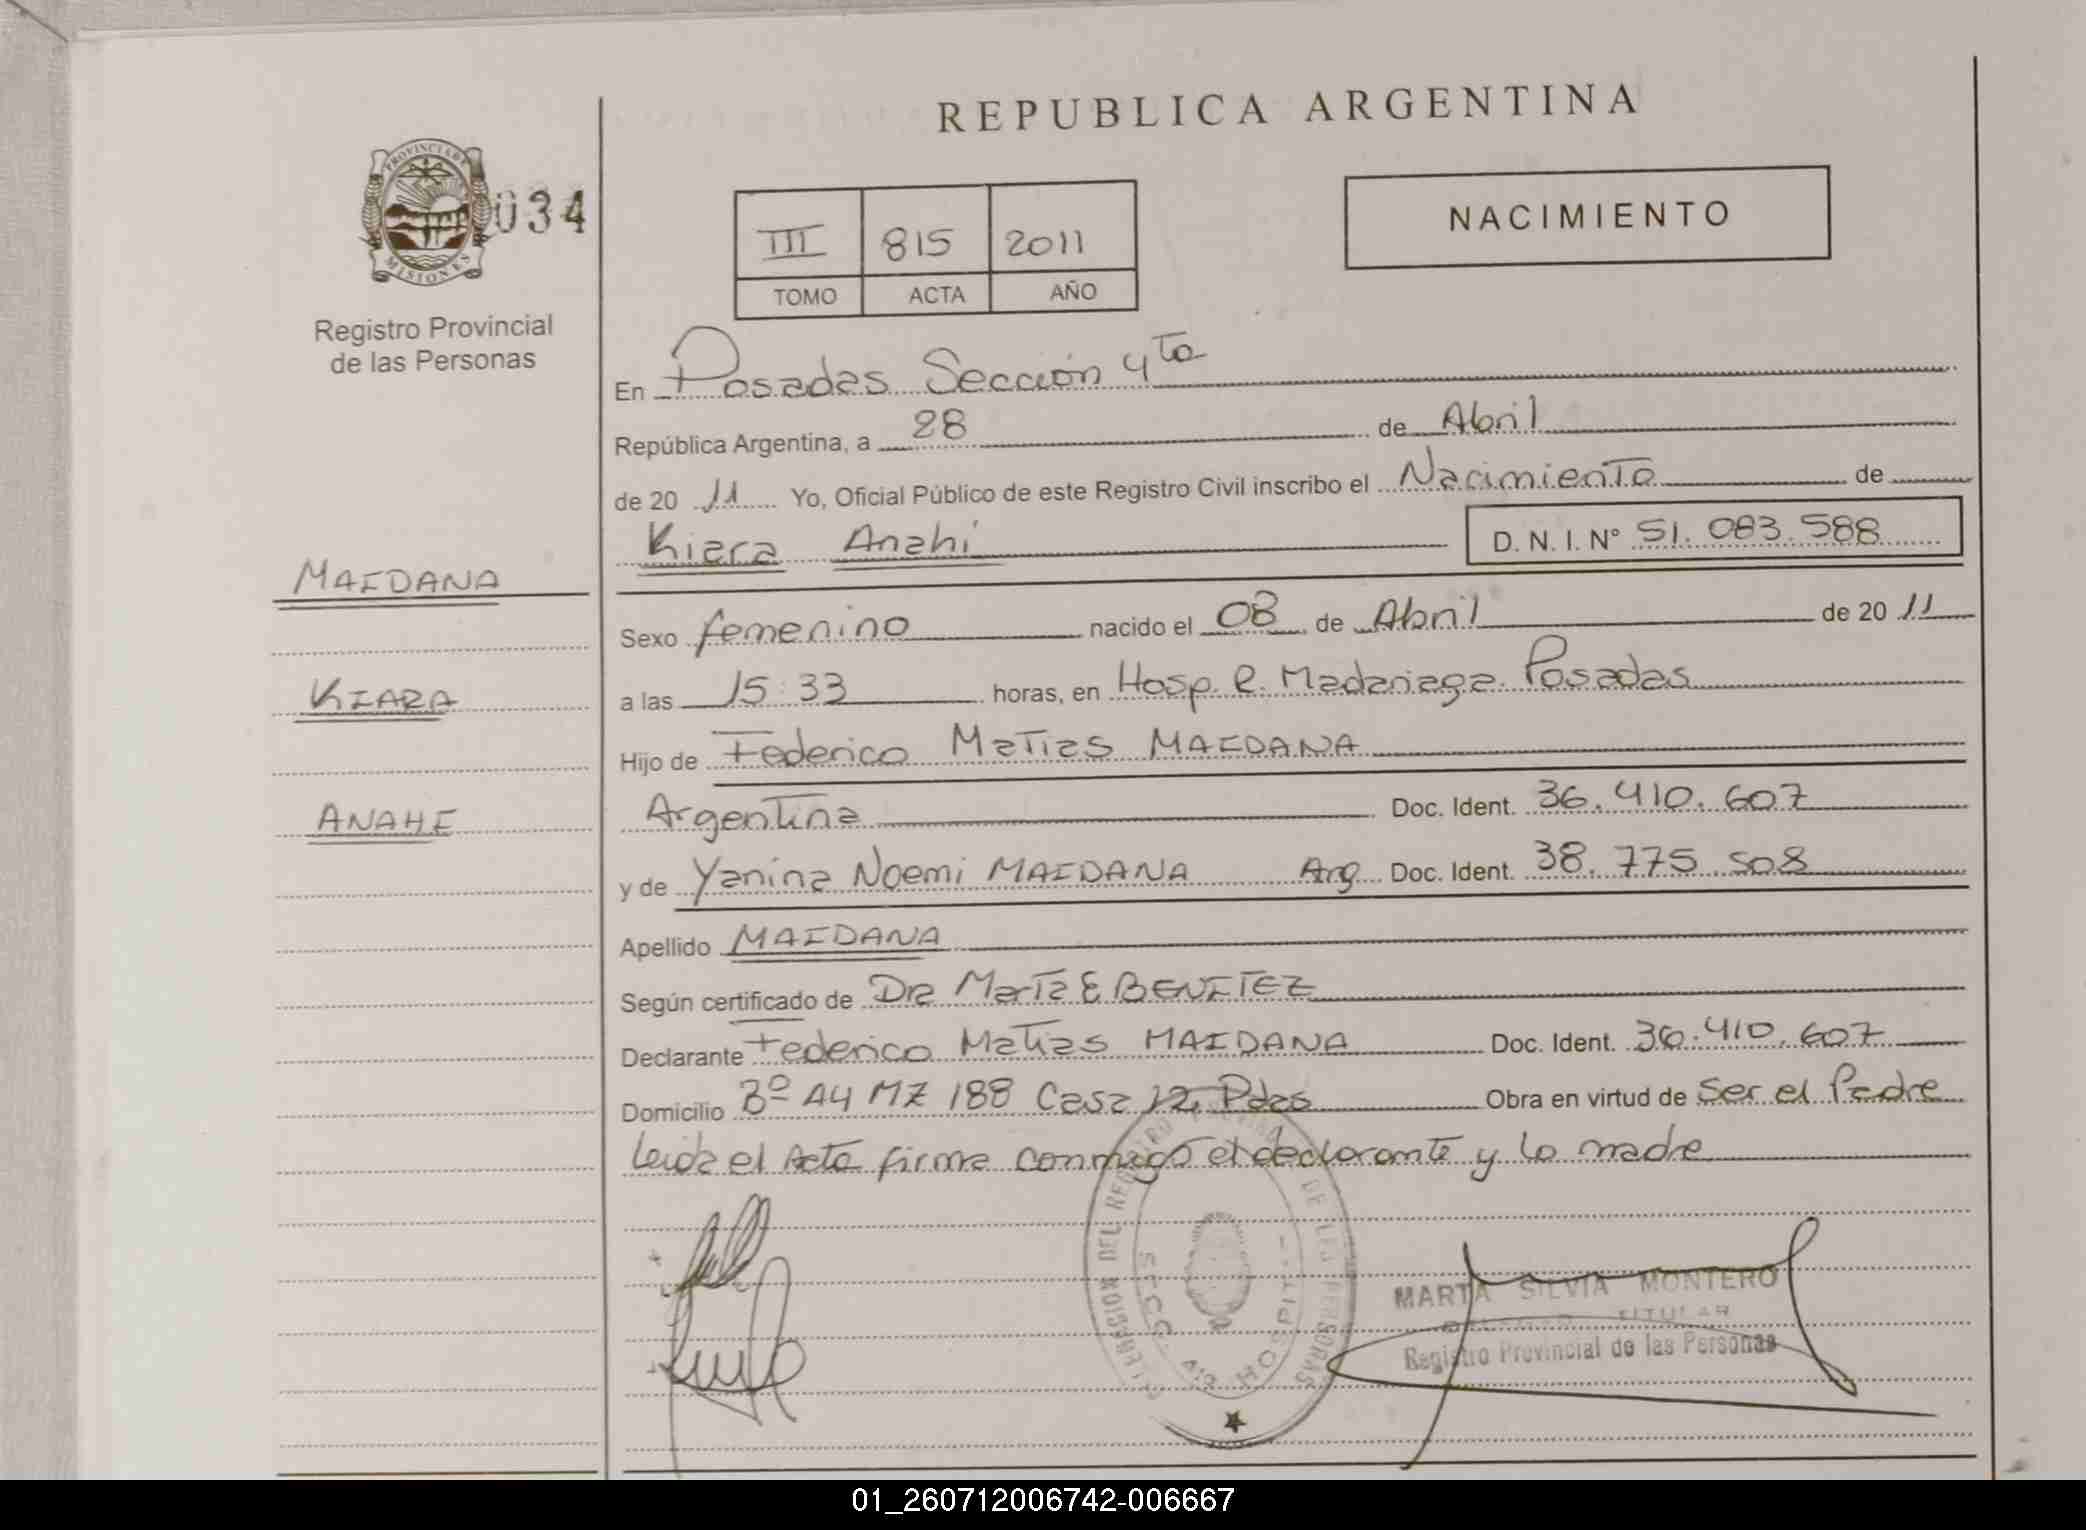 REPUBLICA ARGENTINA
PROVINCIA DE
MISIONES
034
Registro Provincial
de las Personas
III 815 2011
TOMO ACTA AÑO
NACIMIENTO
En Posadas Sección 4ta
República Argentina, a 28 de Abril
de 20 11 Yo, Oficial Público de este Registro Civil inscribo el Nacimiento de
Kiara Anahi D. N. I. Nº 51.083.588
MAIDANA
KIARA
ANAHI
Sexo femenino nacido el 08 de Abril de 20 11
a las 15:33 horas, en Hosp. R. Madariaga. Posadas
Hijo de Federico Matias MAIDANA
Argentina Doc. Ident. 36.410.607
y de Yanina Noemi MAIDANA Arg Doc. Ident. 38.775.508
Apellido MAIDANA
Según certificado de Dra Marta E BENITEZ
Declarante Federico Matias MAIDANA Doc. Ident. 36.410.607
Domicilio Bº A4 MZ 188 Casa 12 Pdas Obra en virtud de Ser el Padre
Leida el Acta firma conmigo el declarante y la madre
DEL REGISTRO DE LAS PERSONAS
HOSPITAL
MARTA SILVIA MONTERO
TITULAR
Registro Provincial de las Personas
01_260712006742-006667